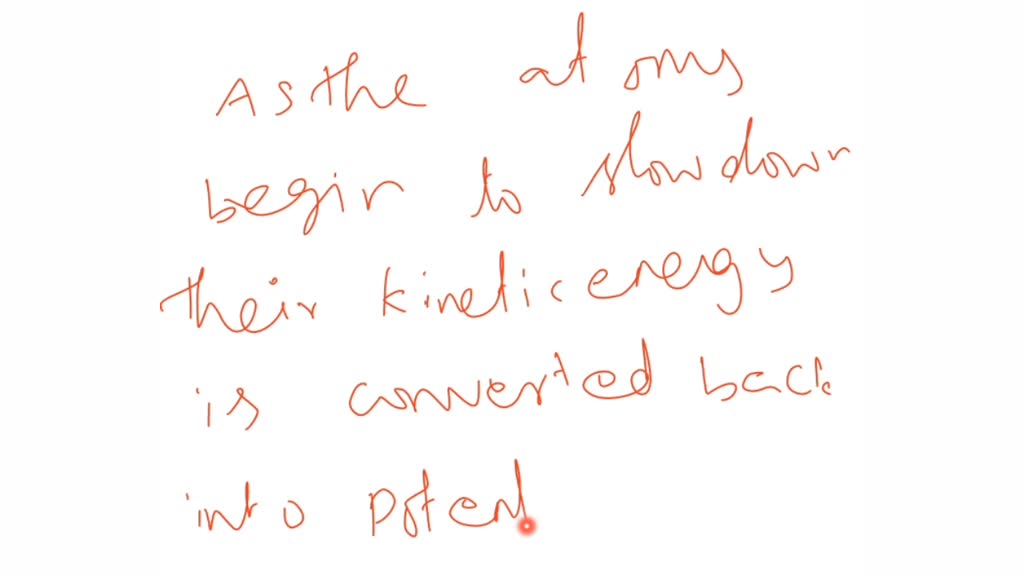 As the atoms
begin to slow down
their kinetic energy
is converted back
into potent